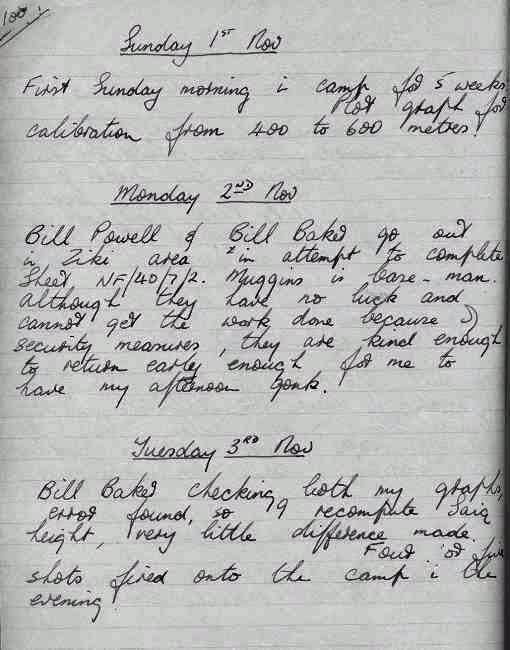 100.
Sunday 1ST Nov
First Sunday morning i camp for 5 weeks.
Plot graph for
calibration from 400 to 600 metres.
Monday 2ND Nov
Bill Powell & Bill Baker go out
in Ziki area in attempt to complete
Sheet NF/40/7/2. Muggins is base-man.
Although they have no luck and
cannot get the work done because of
security measures, they are kind enough
to return early enough for me to
have my afternoon gonk.
Tuesday 3RD Nov
Bill Baker checking both my graphs,
error found, so I recompute Saiq
height, very little difference made.
Four or five
shots fired onto the camp i the
evening.